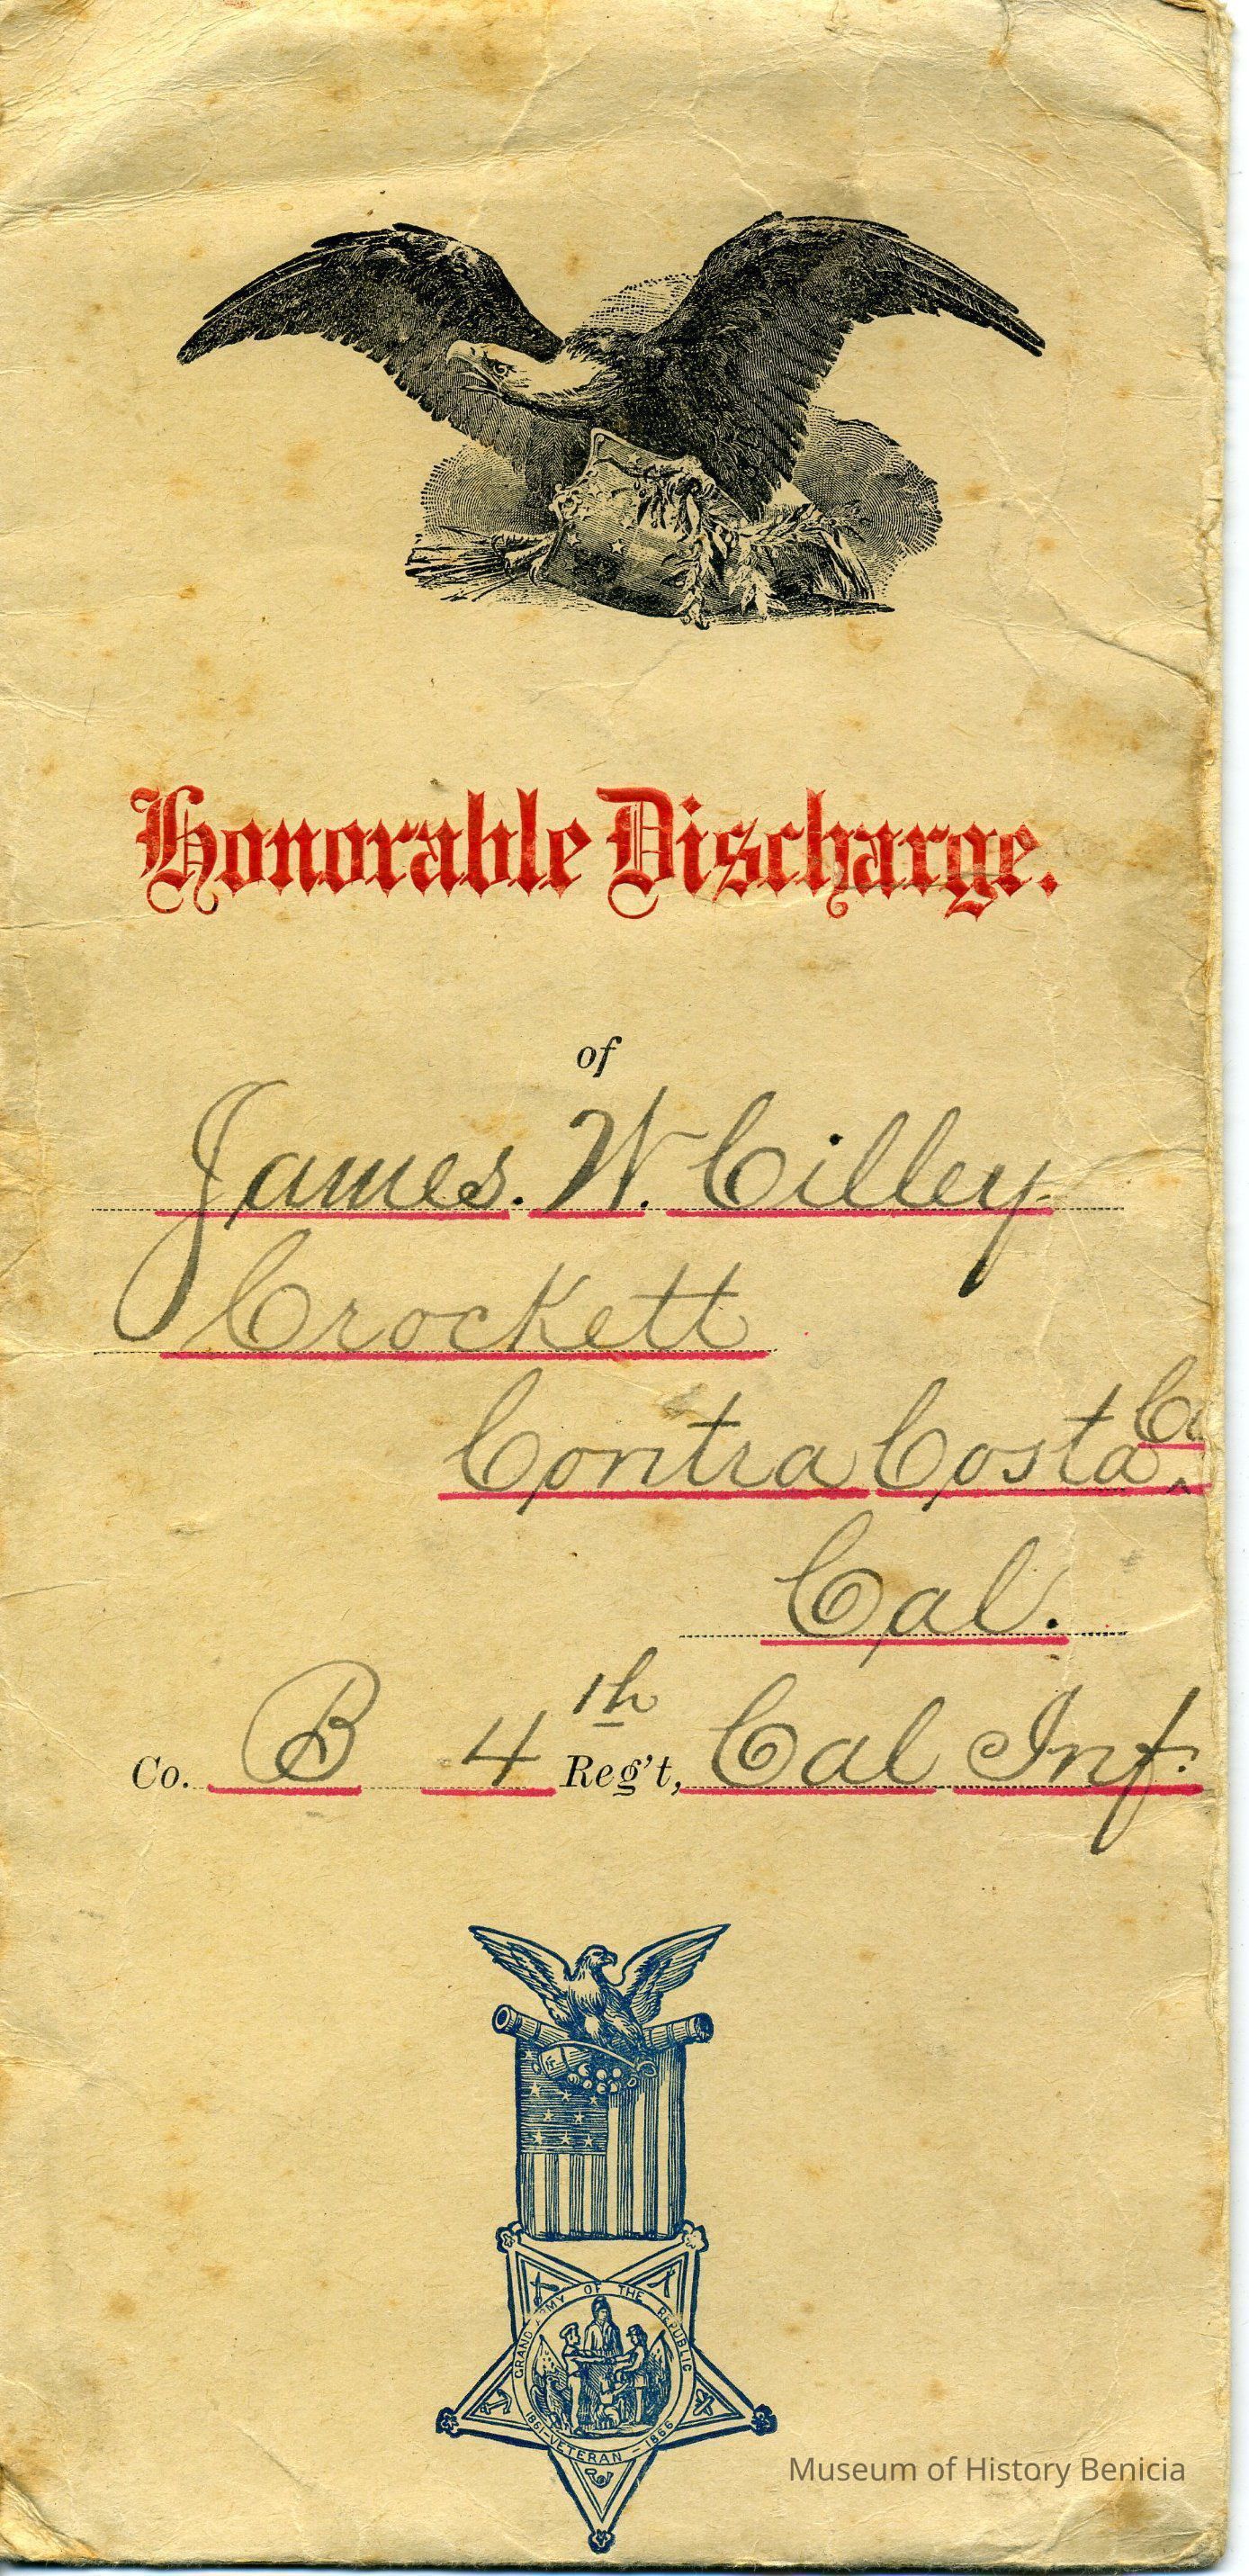 Honorable Discharge.
of
James. W. Cilley
Crockett
Contra Costa Co
Cal.
Co. B 4th Reg't, Cal Inf.
GRAND ARMY OF THE REPUBLIC
1861-VETERAN-1866
Museum of History Benicia